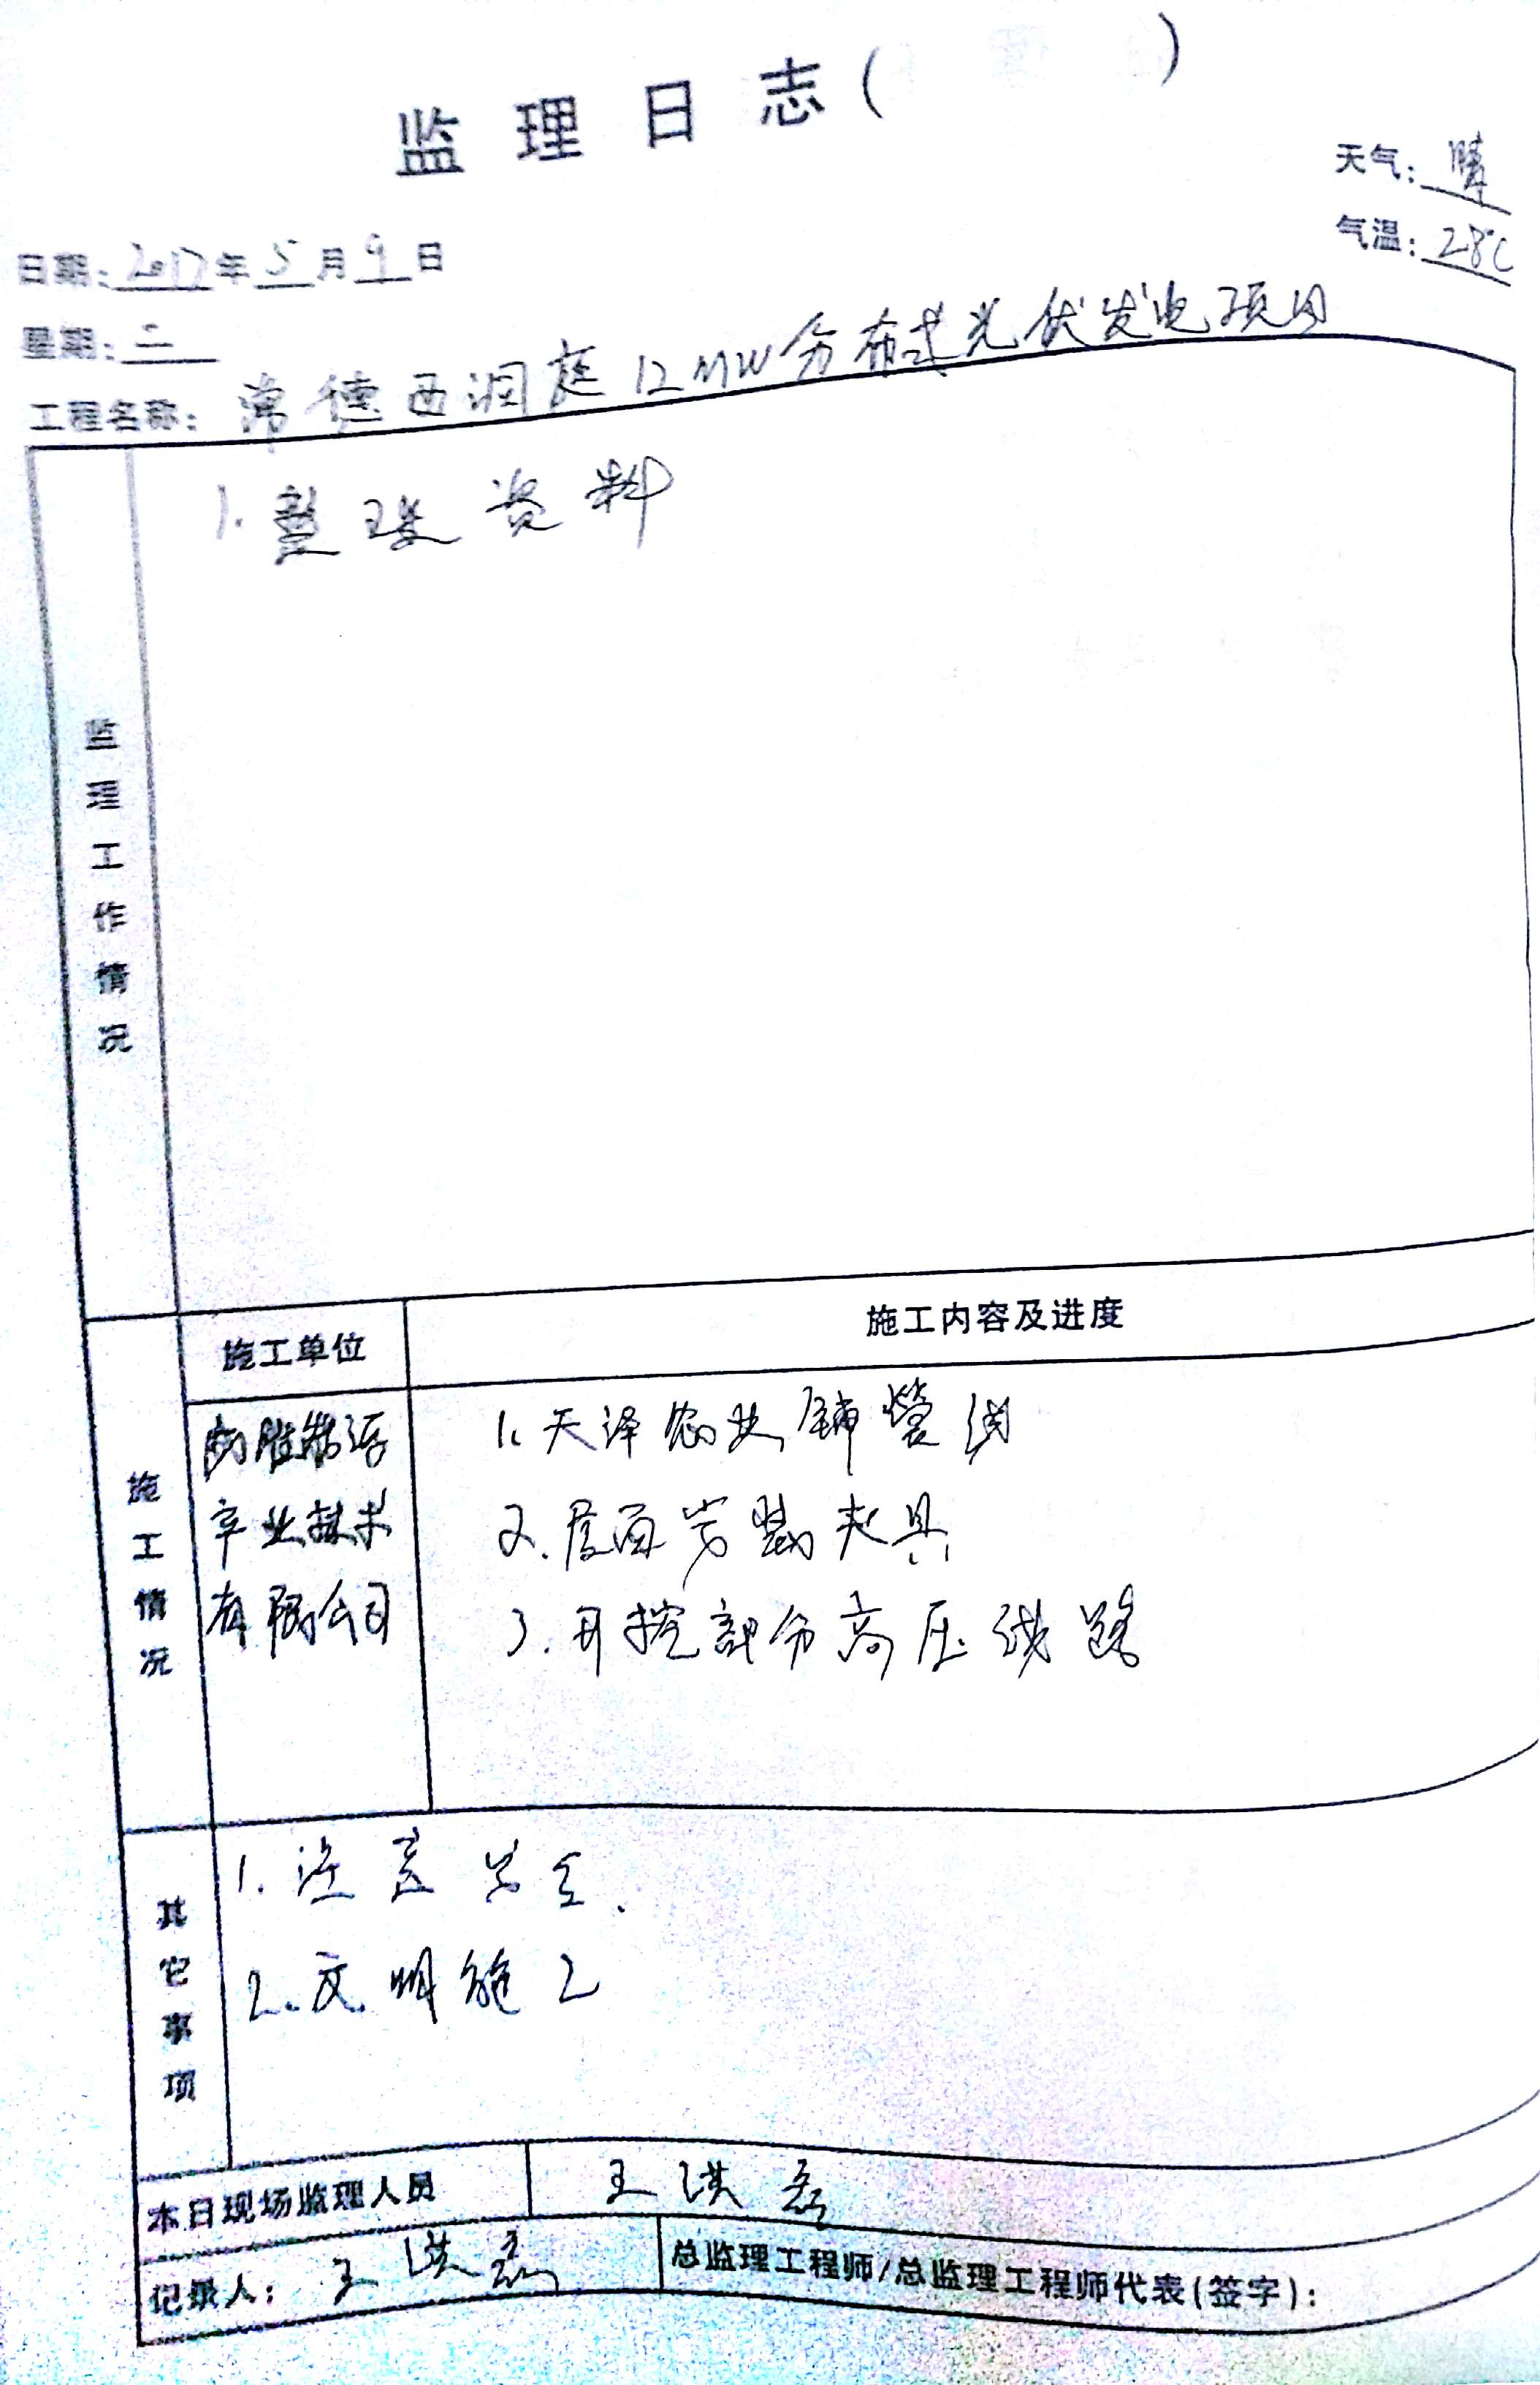 监理日志( )
天气: 晴
气温: 28℃
日期: 2017年5月9日
星期: 二
工程名称: 常德西洞庭12MW分布式光伏发电项目
监理工作情况
1. 整理资料
施工情况
施工单位
施工内容及进度
产业技术
有限公司
1. 天泽农业铺管线
2. 屋面安装夹具
3. 开挖部分高压线路
其它事项
1. 注意安全.
2. 文明施工
本日现场监理人员
王洪磊
记录人: 王洪磊
总监理工程师/总监理工程师代表(签字):